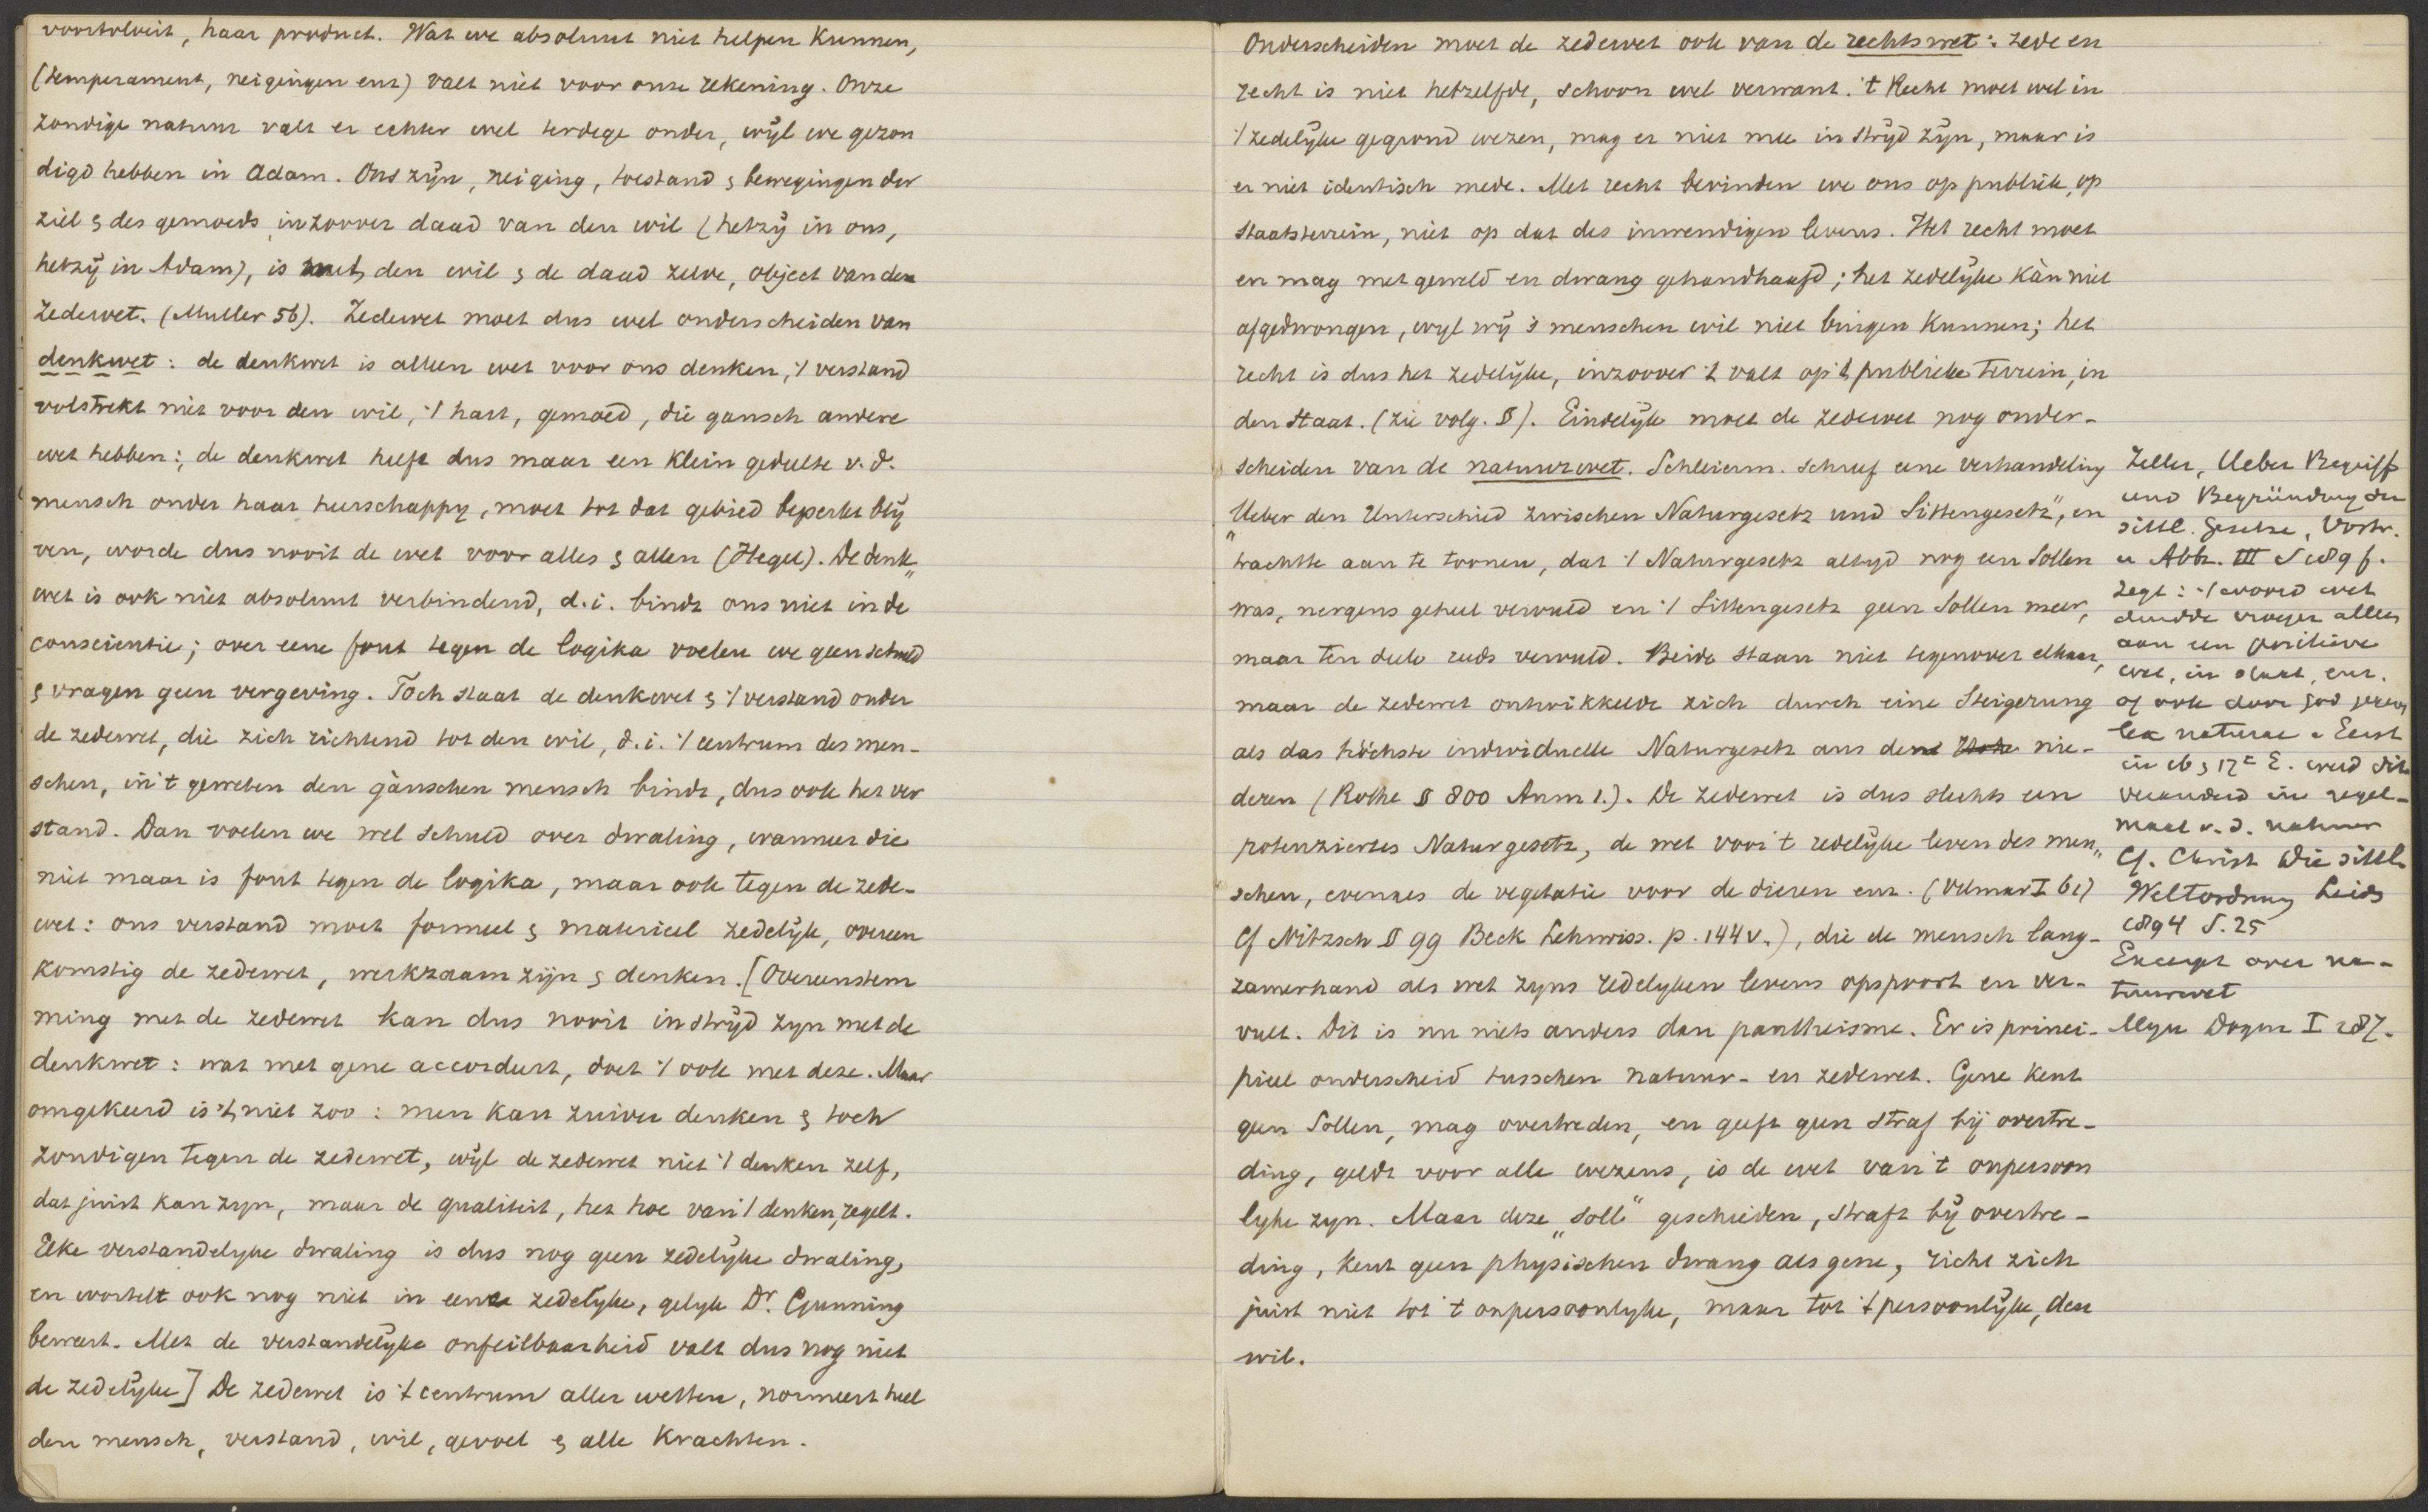 voortvloeit, haar product. Wat we absoluut niet helpen kunnen,
(temperament, neigingen enz) valt niet voor onze rekening. Onze
zondige natuur valt er echter wel terdege onder, wijl we gezon
digd hebben in Adam. Ons zijn, neiging, toestand & bewegingen der
ziel & des gemoeds, inzoover daad van den wil (hetzij in ons,
hetzij in Adam), is met den wil & de daad zelve, object van den
Zedewet. (Muller 56). Zedewet moet dus wel onderscheiden van
denkwet: de denkwet is alleen wet voor ons denken, 't verstand
volstrekt niet voor den wil, 't hart, gemoed, die gansch andere
wet hebben; de denkwet heeft dus maar een klein gedeelte v. d.
mensch onder haar heerschappy, moet tot dat gebied beperkt blij
ven, worde dus nooit de wet voor alles & allen (Hegel). De denk„
wet is ook niet absoluut verbindend, d.i. bindt ons niet in de
conscientie; over eene fout tegen de logika voelen we geen schuld
& vragen geen vergeving. Toch staat de denkwet & 't verstand onder
de zedewet, die zich richtend tot den wil, d.i. 't centrum des men-
schen, in 't geweten den gànschen mensch bindt, dus ook het ver
stand. Dan voelen we wel schuld over dwaling, wanneer die
niet maar is fout tegen de logika, maar ook tegen de zede-
wet: ons verstand moet formeel & materieel zedelijk, overeen
komstig de zedewet, werkzaam zijn & denken. [Overeenstem
ming met de zedewet kan dus nooit in strijd zyn met de
denkwet: wat met gene accordeert, doet 't ook met deze. Maar
omgekeerd is 't niet zoo: men kan zuiver denken & toch
zondigen tegen de zedewet, wijl de zedewet niet 't denken zelf,
dat juist kan zyn, maar de qualiteit, het hoe van 't denken, regelt.
Elke verstandelyke dwaling is dus nog geen zedelijke dwaling,
en wortelt ook nog niet in eene zedelijke, gelyk Dr. Gunning
beweert. Met de verstandelijke onfeilbaarheid valt dus nog niet
de zedelijke] De zedewet is 't centrum aller wetten, normeert heel
den mensch, verstand, wil, gevoel & alle krachten.
Onderscheiden moet de zedewet ook van de rechtswet: zede en
recht is niet hetzelfde, schoon wel verwant. 't Recht moet wel in
't zedelijke gegrond wezen, mag er niet mee in strijd zijn, maar is
er niet identisch mede. Met recht bevinden we ons op publiek, op
staatsterrein, niet op dat des inwendigen levens. Het recht moet
en mag met geweld en dwang gehandhaafd; het zedelijke kàn niet
afgedwongen, wyl wij 's menschen wil niet buigen kunnen; het
recht is dus het zedelijke, inzoover 't valt op 't publieke terrein, in
den Staat. (zie volg. §). Eindelijk moet de zedewet nog onder-
scheiden van de natuurwet. Schleierm. schreef eene verhandeling
„Ueber den Unterschied zwischen Naturgesetz und Sittengesetz", en
trachtte aan te toonen, dat 't Naturgesetz altyd nog een Sollen
was, nergens geheel vervuld en 't Sittengesetz geen Sollen meer,
maar ten deele reeds vervuld. Beide staan niet tegenover elkaar,
maar de zedewet ontwikkelde zich durch eine Steigerung
als das höchste individuelle Naturgesetz aus den nie-
deren (Rothe § 800 Anm 1.). De zedewet is dus slechts een
potenziertes Naturgesetz, de wet voor 't redelijke leven des men„
schen, evenals de vegetatie voor de dieren enz. (Vilmar I 61)
Cf Nitzsch § 99 Beck Lehrwiss. p. 144 v.), die de mensch lang-
zamerhand als wet zyns redelyken levens opspoort en ver-
vult. Dit is nu niets anders dan pantheisme. Er is princi-
pieel onderscheid tusschen natuur- en zedewet. Gene kent
geen Sollen, mag overtreden, en geeft geen straf bij overtre-
ding, geldt voor alle wezens, is de wet van 't onpersoon
lyke zyn. Maar deze „soll" geschieden, straft bij overtre-
ding, kent geen physischen dwang als gene, richt zich
juist niet tot 't onpersoonlyke, maar tot 't persoonlijke, den
wil.
Zeller, Ueber Begriff
und Begründung der
sittl. Gesetze, Vortr.
u Abh. III S 189 f.
zegt: 't woord wet
duidde vroeger alleen
aan een positieve
wet, in staat, enz.
of ook door God
lex naturae. Eerst
in 16 & 17e E. werd dit
veranderd in regel-
maat v. d. natuur
Cf. Christ Die sittl.
Weltordnung Leid
1894 S. 25
Excerpt over na-
tuurwet
Mijn Dogm I 287.